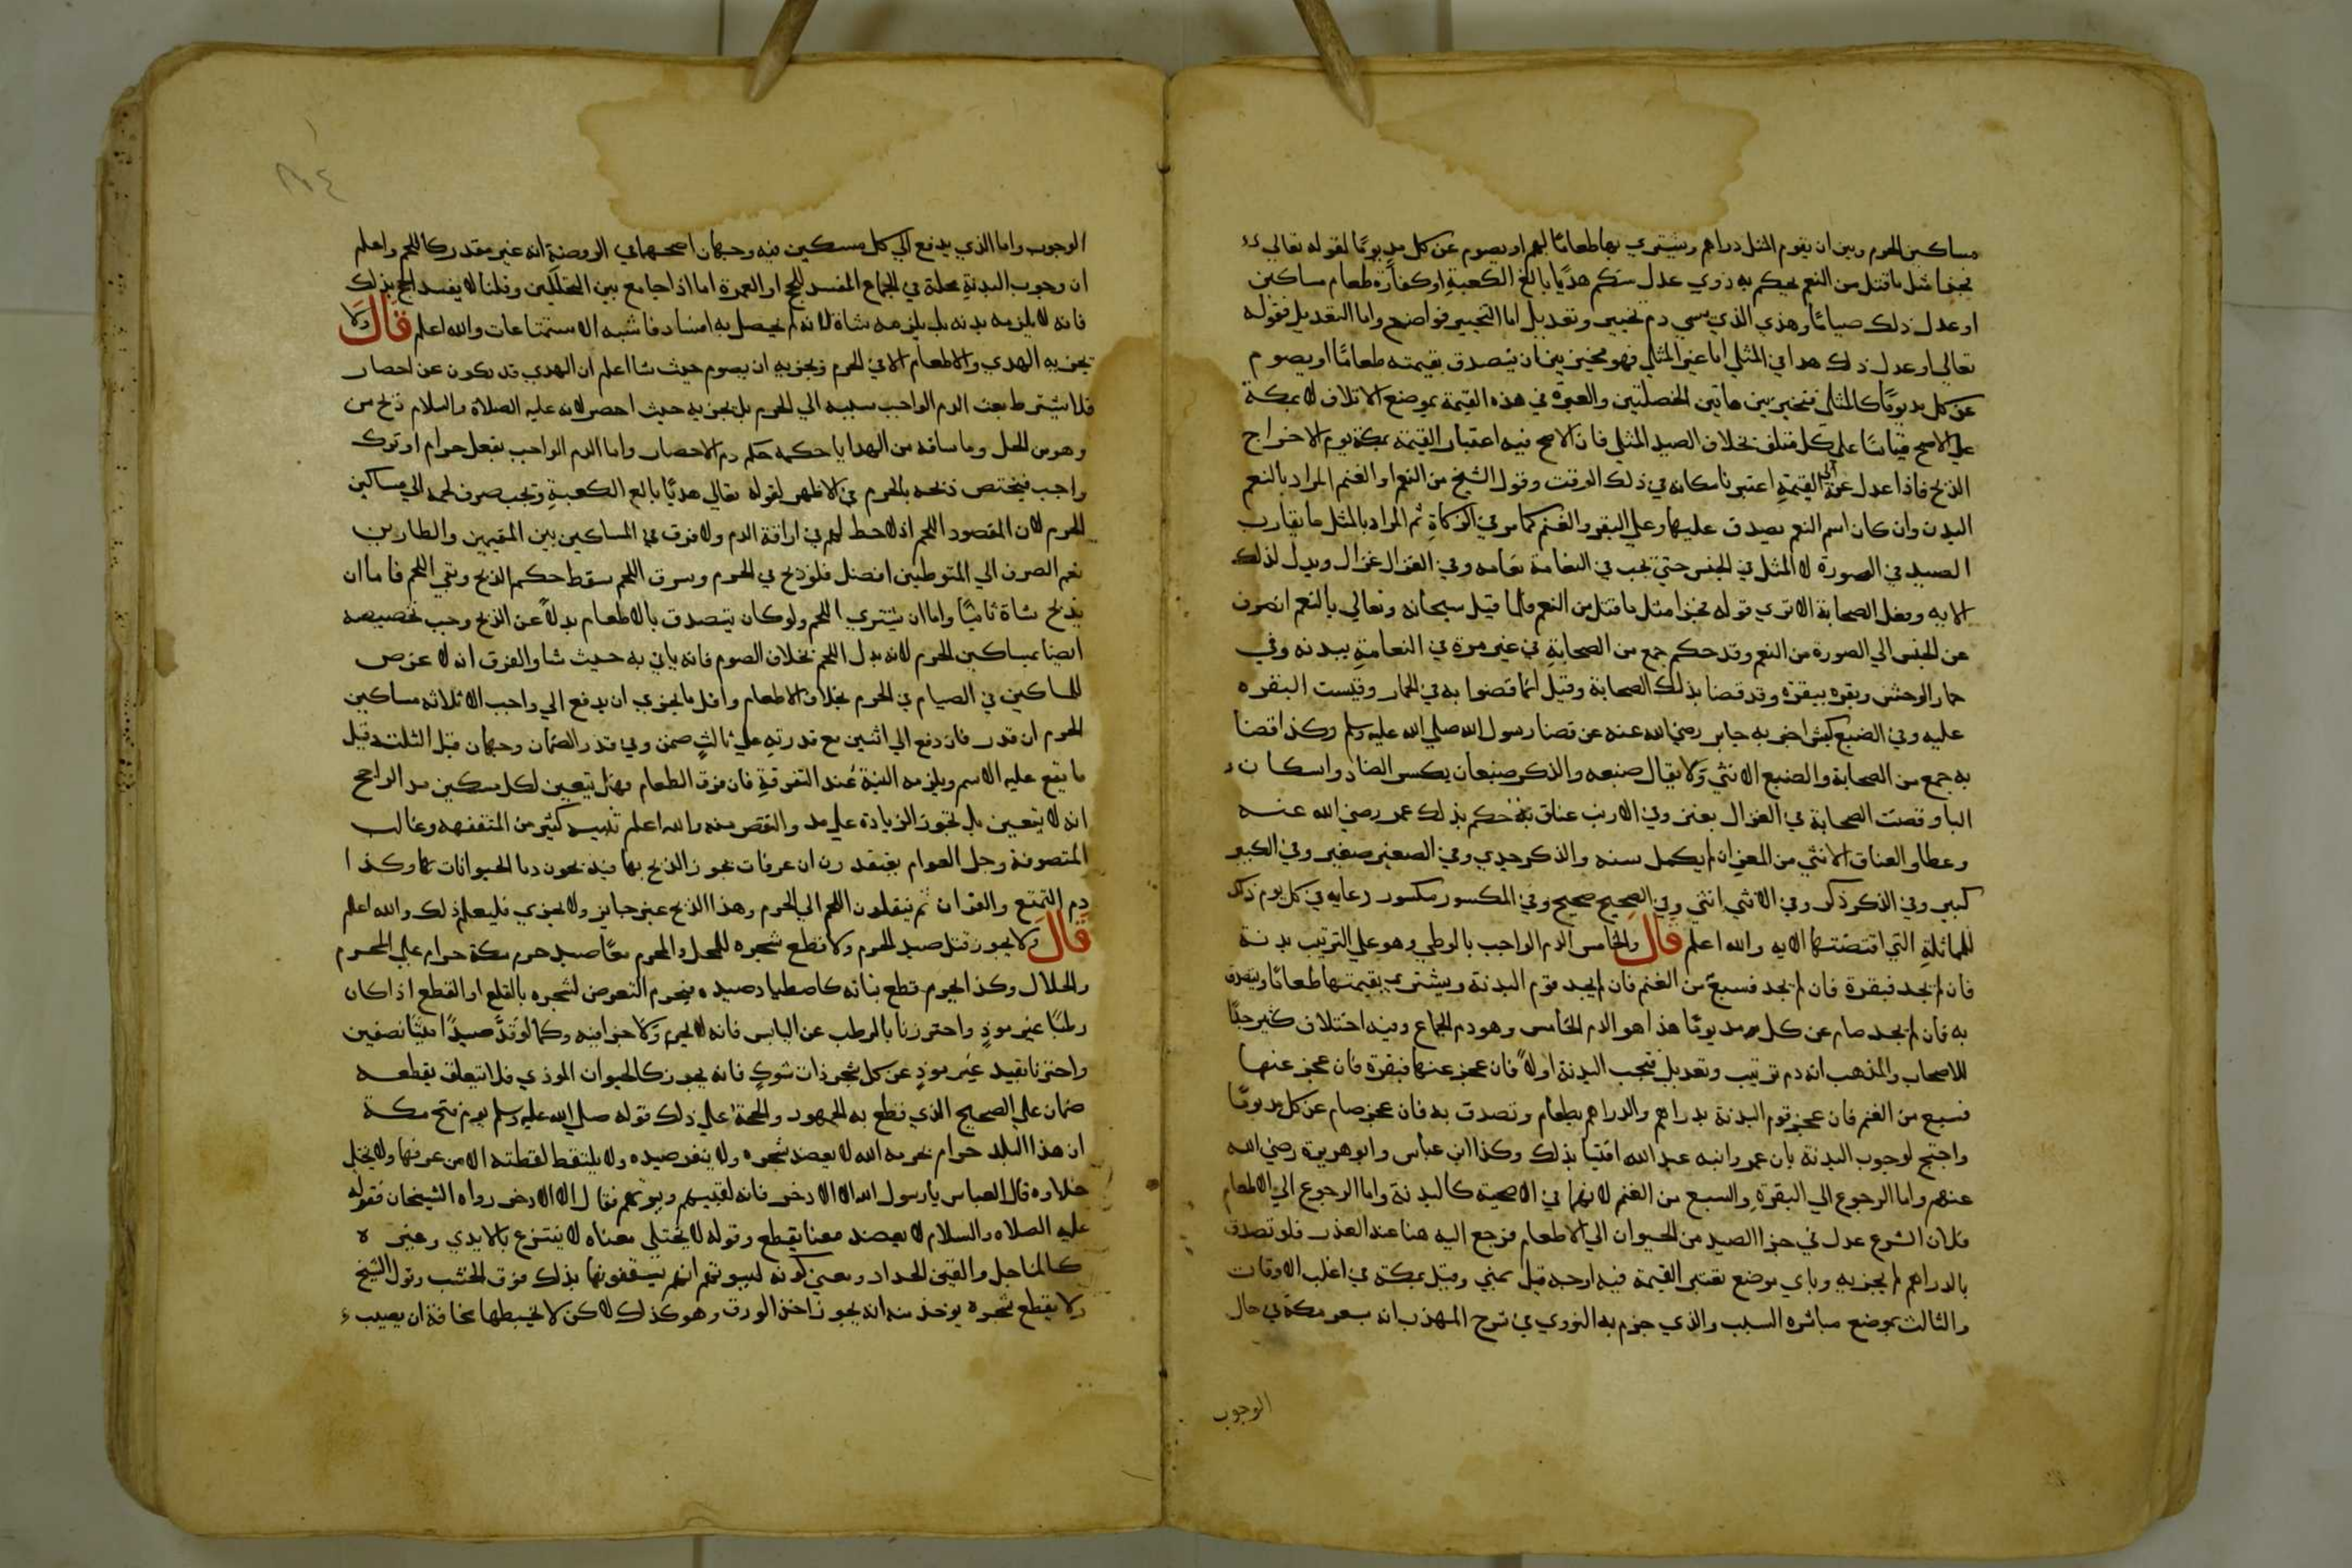 مساكين الحرم وبين ان يقوم المثل دراهم ويشتري بها طعامًا لهم او يصوم عن كل مد يومًا لقوله تعالي
فجزا مثل ما قتل من النعم يحكم به ذوي عدل منكم هديًا بالغ الكعبةِ او كفارة طعام مساكين
او عدل ذلك صيامًا وهذي الذي يسمي دم تخيير وتعديل اما التخيير فواضح واما التعديل فقوله
تعالي او عدل ذلك هدا في المثلي اما غير المثلي فهو مخير بين ان يتصدق بقيمته طعامًا او يصوم
عن كل مد يومًا كالمثلي فتخير بين هاتين الخصلتين والعبرة في هذه القيمة بموضع الاتلاف لا بمكة
علي الاصح قياسًا علي كل متلف بخلاف الصيد المثلي فان الاصح فيه اعتبار القيمة بمكة يوم الاخراج
الذبح فاذا عدل عنه الي القيمةِ اعتبرنا مكانه في ذلك الوقت وقول الشيخ من النعم او الغنم المراد بالنعم
البدن وان كان اسم النعم يصدق عليها وعلي البقر والغنم كما مر في الزكاةِ ثم المراد بالمثل ما يقارب
الصيد في الصورة لا المثل في الجنس حتي يجب في النعامة نعامه وفي الغزال غزال ويدل لذلك
الايه وبفعل الصحابة الا تري قوله فجزا مثل ما قتل من النعم فلما قيل سبحانه وتعالي بالنعم انصرف
عن الجنس الي الصورة من النعم وقد حكم جمع من الصحابةِ في غير مرة في النعامةِ ببدنه وفي
حمار الوحش وبقره ببقرة وقد قضا بذلك الصحابة وقيل انما قضوا به في الحمار وقيست البقره
عليه وفي الضبع كبش اخبر به جابر رضي الله عنه عن قضا رسول الله صلي الله عليه وسلم وكذا قضا
به جمع من الصحابة والضبع الانثي وَلا يقال ضبعه والذكر ضبعان بكسر الضاد واسكان
البا وقضت الصحابة في الغزال بعنز وفي الارنب عناق حكم بذلك عمر رضي الله عنه
وعطا والعناق الانثي من المعز ان لم يكمل سنه والذكر جدي وفي الصغير صغير وفي الكبير
كبير وفي الذكر ذكر وفي الانثي انثي وفي الصحيح صحيح وفي المكسور مكسور رعايه في كل يوم ذلك
للمماثلةِ التي اقتضتها الايه والله اعلم قال والخامس الدم الواجب بالوطي وهو علي الترتيب بدنة
فان لم يجد فبقرة فان لم يجد فسبعٌ من الغنم فان لم يجد قوم البدنة ويشتري بقيمتها طعامًا ويتصدق
به فان لم يجد صام عن كل مد يومًا هذا هو الدم الخامس وهو دم الجماع وفيه اختلاف كثير جدًّا
للاصحاب والمذهب انه دم ترتيب وتعديل فتجب البدنة اولاً فان عجز عنها فبقرة فان عجز عنها
فسبع من الغنم فان عجز قوم البدنة بدراهم والدراهم بطعام وتصدق به فان عجز صام عن كل مد يومًا
واحتج لوجوب البدنة بان عمر وابنه عبد الله افتيا بذلك وكذا ابن عباس وابو هريرة رضي الله
عنهم واما الرجوع الي البقرةِ والسبع من الغنم لانهما في الاضحية كالبدنة واما الرجوع الي الاطعام
فلان الشرع عدل في جزا الصيد من الحيوان الي الاطعام فرجع اليه هنا عند العذر فلو تصدق
بالدراهم لم يجزيه وباي موضع تعتبر القيمة فيه اوجه قيل بمني وقيل بمكة في اغلب الاوقات
والثالث بموضع مباشره السبب والذي جزم به النووي في شرح المهذب انه بسعر مكة في حال
الوجوب
الوجوب واما الذي يدفع الي كل مسكين فيه وجهان اصحهما في الروضة انه غير مقدر كاللحم واعلم
ان وجوب البدنةِ محله في الجماع المفسد للحج او العمرة اما اذا جامع بين التحللين وقلنا لا يفسد الحج بذلك
فانه لا يلزمه بدنه بل يلزمه شاة لانه لم يحصل به افساد فاشبه الاستمتاعات والله اعلم قال ولا
يجزيه الهدي والاطعام الا في الحرم ويجزيه ان يصوم حيث شا اعلم ان الهدي قد يكون عن احصار
فلا يشترط بعث الدم الواجب بسببه الي الحرم بل يجزيه حيث احصر لانه عليه الصلاة والسلام ذبح من
وهو من الحل وما ساقه من الهدايا حكمه حكم دم الاحصار واما الدم الواجب بفعل حرام او ترك
واجب فيختص ذبحه بالحرم في الاظهر لقوله تعالي هديًا بالغ الكعبةِ وتجب صرف لحمه الي مساكين
الحرم لان المقصود اللحم اذ لا حظ لهم في اراقة الدم ولا فرق في المساكين بين المقيمين والطارين
نعم الصرف الي المتوطنين افضل فلو ذبح في الحرم وسرق اللحم سقط حكم الذبح وبقي اللحم فاما ان
يذبح شاة ثانيًا واما ان يشتري اللحم ولو كان يتصدق بالاطعام بدلاً عن الذبح وجب تخصيصه
ايضا بمساكين الحرم لانه بدل اللحم بخلاف الصوم فانه ياتي به حيث شا والفرق انه لا غرض
للمساكين في الصيام في الحرم بخلاف الاطعام واقل ما يجزي ان يدفع الي واجب الا ثلاثه مساكين
الحرم ان قدر فان دفع الي اثنين مع قدرتهِ علي ثالثٍ ضمن وفي قدر الضمان وجهان قيل الثلث وقيل
ما يقع عليه الاسم ويلزمه النية عند التفرقةِ فان فرق الطعام فهل يتعين لكل مسكين مد الراجح
انه لا يتعين بل تجوز الزيادة علي مد والنقص منه والله اعلم تنبيه كثير من المتفقهه وغالب
المتصوفة وجل العوام يعتقدون ان عرفات يجوز الذبح بها فيذبحون دما الحيوانات بها وكذا
دم التمتع والقران ثم ينقلون اللحم الي الحرم وهذا الذبح غير جايز ولا يجزي فليعلم ذلك والله اعلم
قال ولا يجوز قتل صيد الحرم ولا قطع شجره للمحل والمحرم معًا صيد حرم مكة حرام علي المحرم
والحلال وكذا يحرم قطع نباته كاصطياد صيده فيحرم التعرض لشجره بالقلع او القطع اذا كان
رطبًا غير موذٍ واحترزنا بالرطب عن اليابس فانه لا يحرم وَلا جزا فيه وكما لو قدَّ صيدًا ميتًا نصفين
واحترزنا بقيد غير موذٍ عن كل شجر ذات شوكٍ فانه يجوز كالحيوان الموذي فلا يتعلق بقطعه
ضمان علي الصحيح الذي قطع به الجمهور والحجة علي ذلك قوله صلي الله عليه وسلم يوم فتح مكة
ان هذا البلد حرام بحرمه الله لا يعضد شجره ولا ينفر صيده ولا يلتقط لقطته الا من عرفها ولا يختلي
خلاوه قال العباس يا رسول الله الا الاذخر فانه لقينهم وبيوتهم فقال الا الاذخر رواه الشيخان فقوله
عليه الصلاه والسلام لا يعضد معنا يقطع وقوله لا يختلي معناه لا ينتزع بالايدي وغيره
كالمناجل والقين الحداد ومعني كونه لبيوتهم انهم يسقفونها بذلك فوق الخشب وقول الشيخ
ولا يقطع شجره يوخذ منه انه يجوز اخذ الورق وهو كذلك لاكن لا يخبطها مخافة ان يصيب